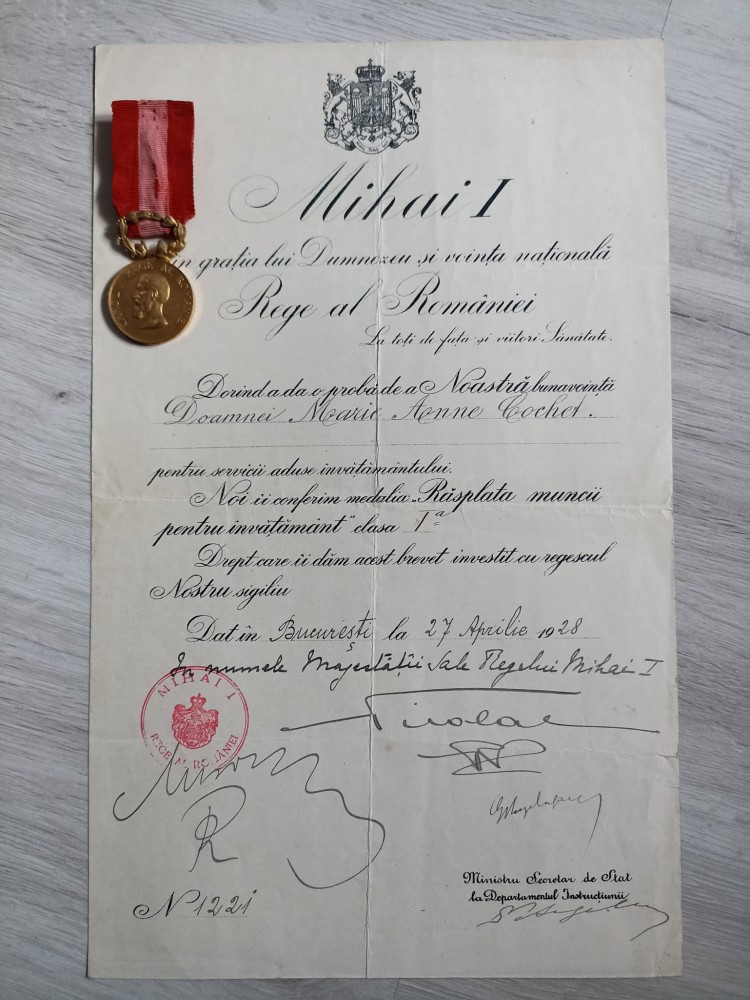 Mihai I
in grația lui Dumnezeu și voința națională
Rege al României
La toți de față și viitori Sănătate.
Dorind a da o probă de a Noastră bunavoință
Doamnei Marie Anne Cochet.
pentru servicii aduse învățământului.
Noi îi conferim medalia „Răsplata muncii
pentru învățământ" clasa Iª
Drept care îi dăm acest brevet investit cu regescul
Nostru sigiliu
Dat în București la 27 Aprilie 1928
In numele Majestății Sale Regelui Mihai I
MIHAI I
REGE AL ROMÂNIEI
Nicolae
Ministru Secretar de Stat
la Departamentul Instrucțiunii
N 1221